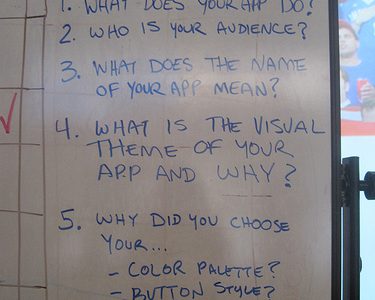 1. WHAT DOES YOUR APP DO?
2. WHO IS YOUR AUDIENCE?
3. WHAT DOES THE NAME
OF YOUR APP MEAN?
4. WHAT IS THE VISUAL
THEME OF YOUR
APP AND WHY?
5. WHY DID YOU CHOOSE
YOUR...
- COLOR PALETTE?
- BUTTON STYLE?